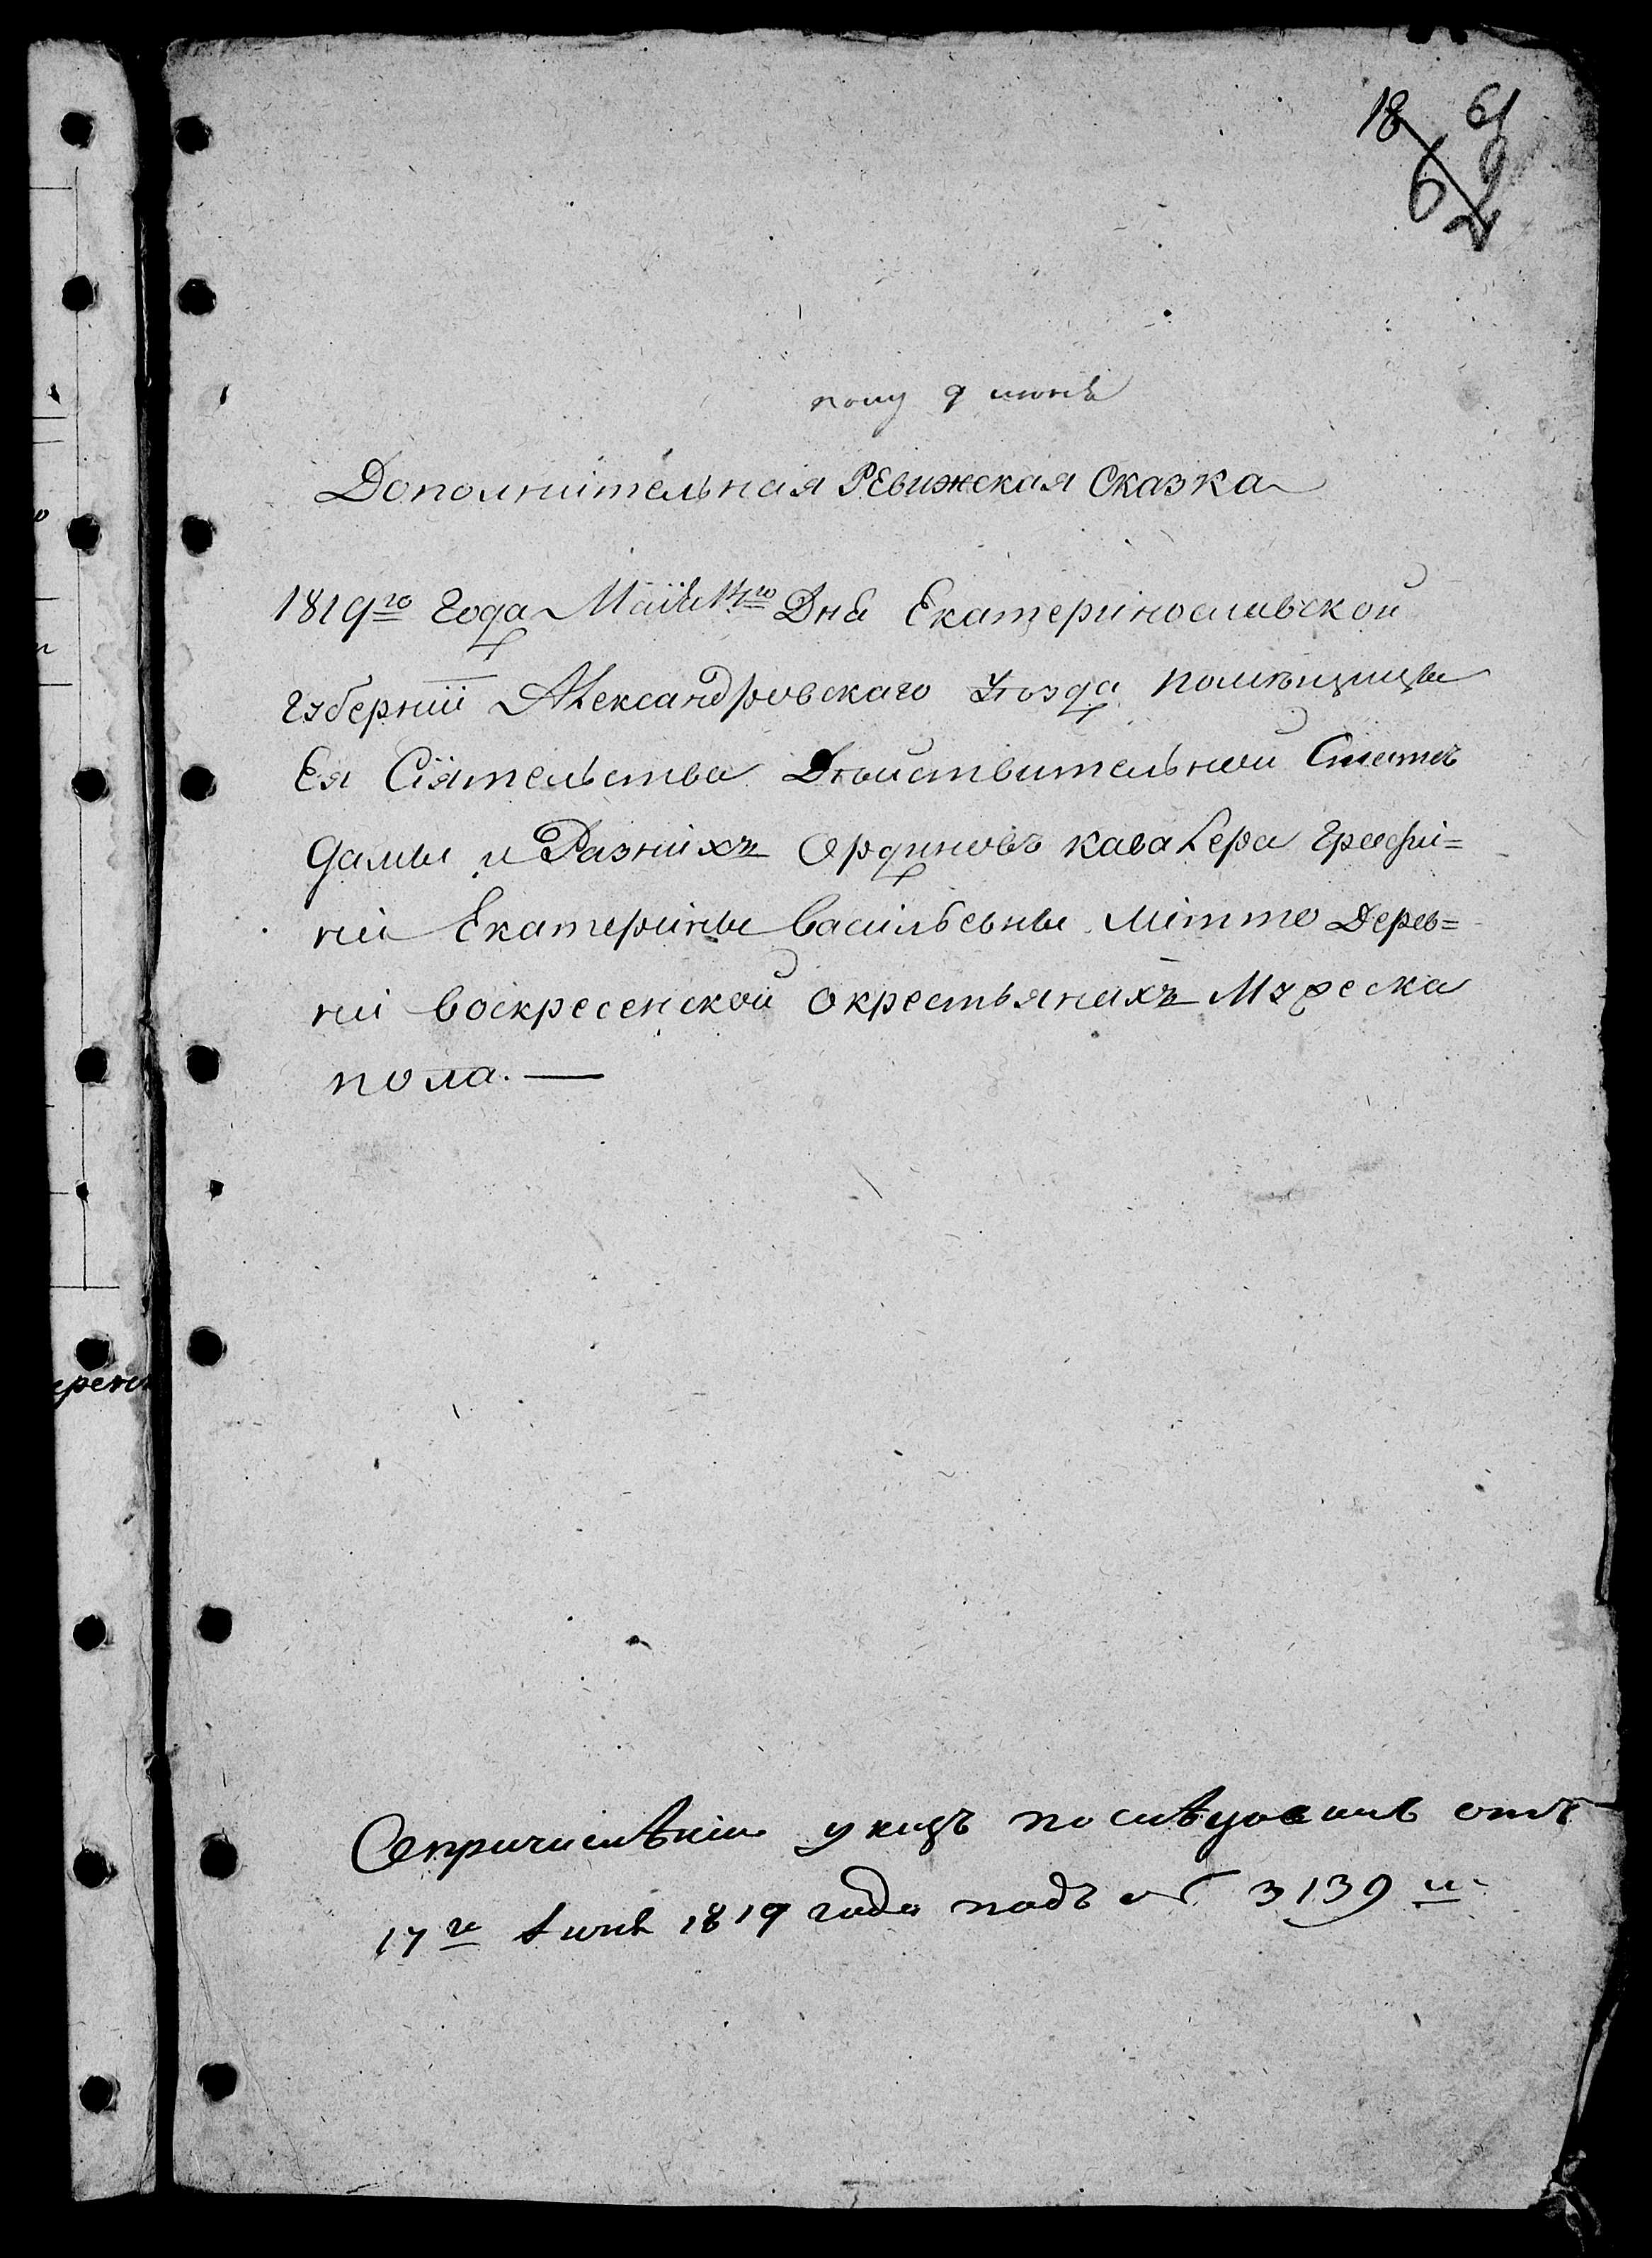 18 61
6 9
2
полу 9 июнѣ
Дополнительная Ревижская Сказка
1819го года Маия 14го Дня Екатеринославской
губернии Александровскаго уѣзда помѣщицы
Ея Сіятельства Дѣйствительной Статсъ
дамы и Разнихъ Ординовъ кавалера графи=
ни Екатерины васильевны Литте Дерев=
ни воскресенской окрестьянахъ Мужеска
пола. —
Опричисленіи указъ последовалъ отъ
17го Іюня 1819 года подъ № 3139 м